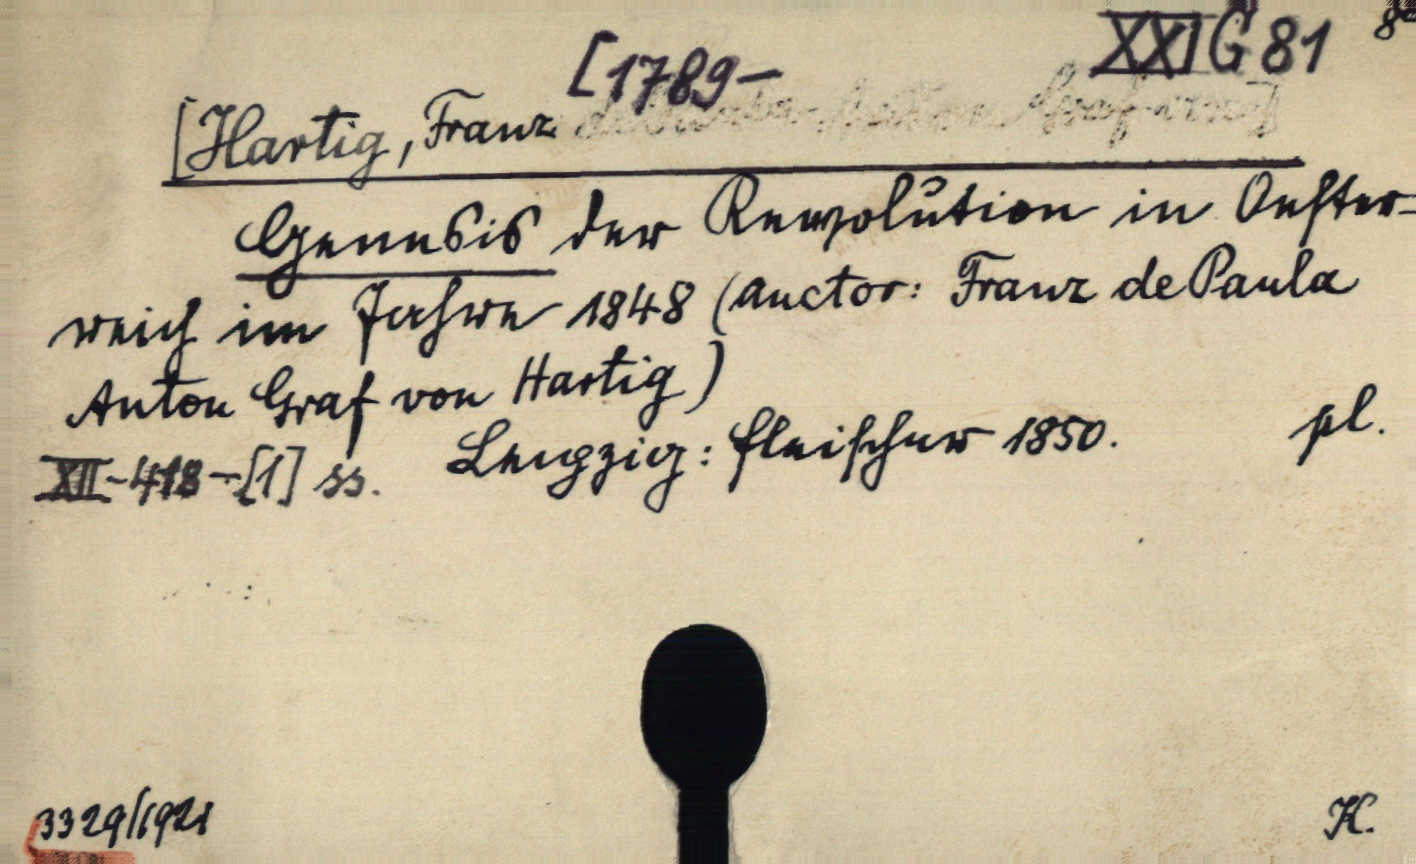 XXI G 81 8°
[1789-
[Hartig, Franz
Genesis der Revolution in Oester-
reich im Jahre 1848 (Auctor: Franz de Paula
Anton Graf von Hartig)
Leipzig: Fleischer 1850. pl.
XII-418-[1] ss.
3329/1921
K.